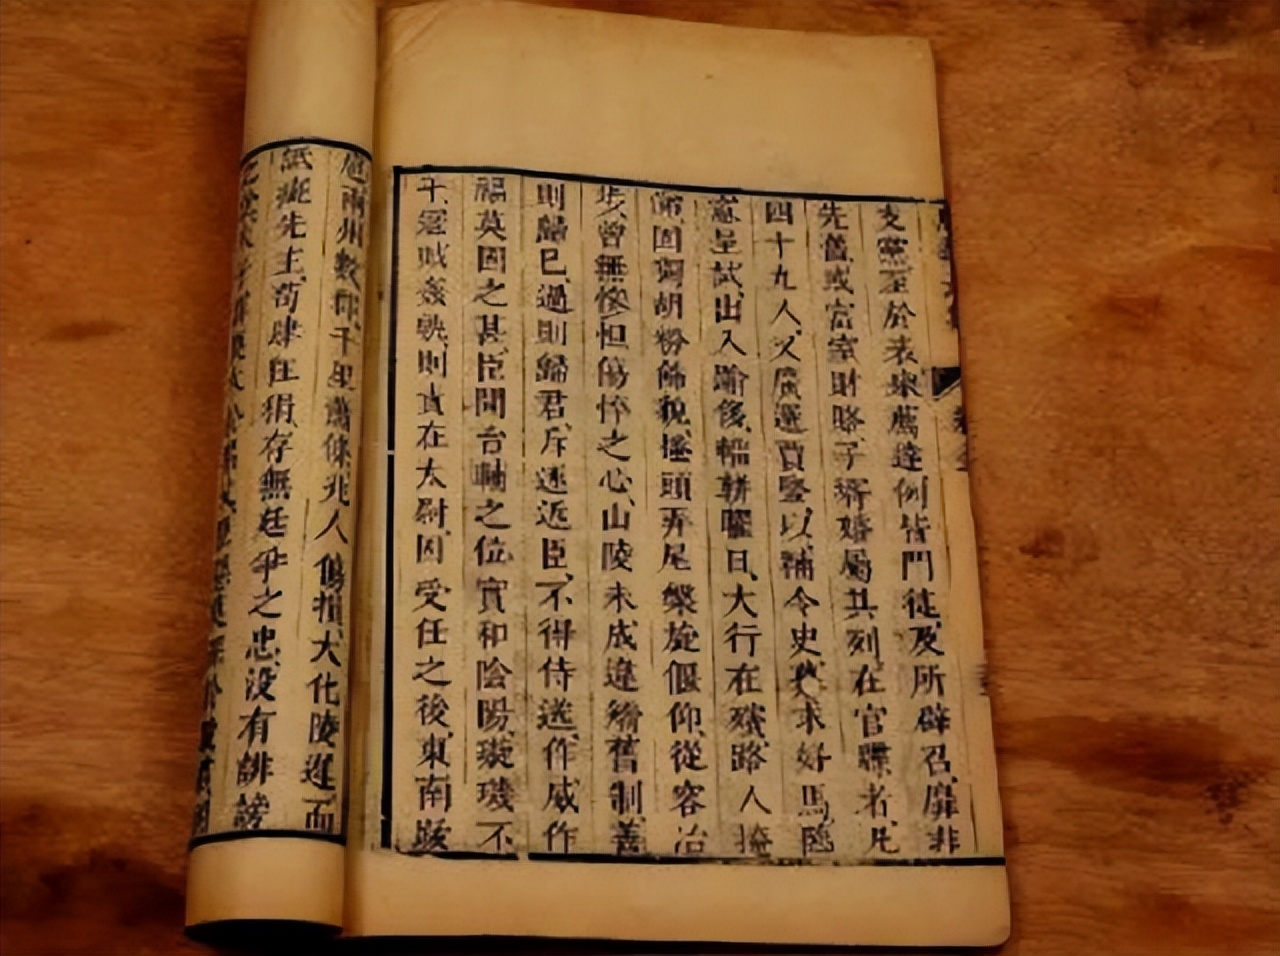 支黨至於表舉薦達例皆門徒及所辟召靡非
先舊或富室財賂子壻婚屬其列在官牒者凡
四十九人又廣選賈豎以補令史求好馬臨
窻呈試出入踰侈輜軿曜日大行在殯路人掩
涕固獨胡粉飾貌搔頭弄尾槃旋偃仰從容冶
步曾無慘怛傷悴之心山陵未成違矯舊制善
則歸已過則歸君斥逐近臣不得侍送作威作
福莫固之甚臣聞台輔之位實和陰陽璇璣不
平寇賊姦軌則責在太尉固受任之後東南跋
扈兩州數郡千里蕭條兆人傷損大化陵遲而
詆疵先主苟肆狂狷存無廷爭之忠没有誹謗